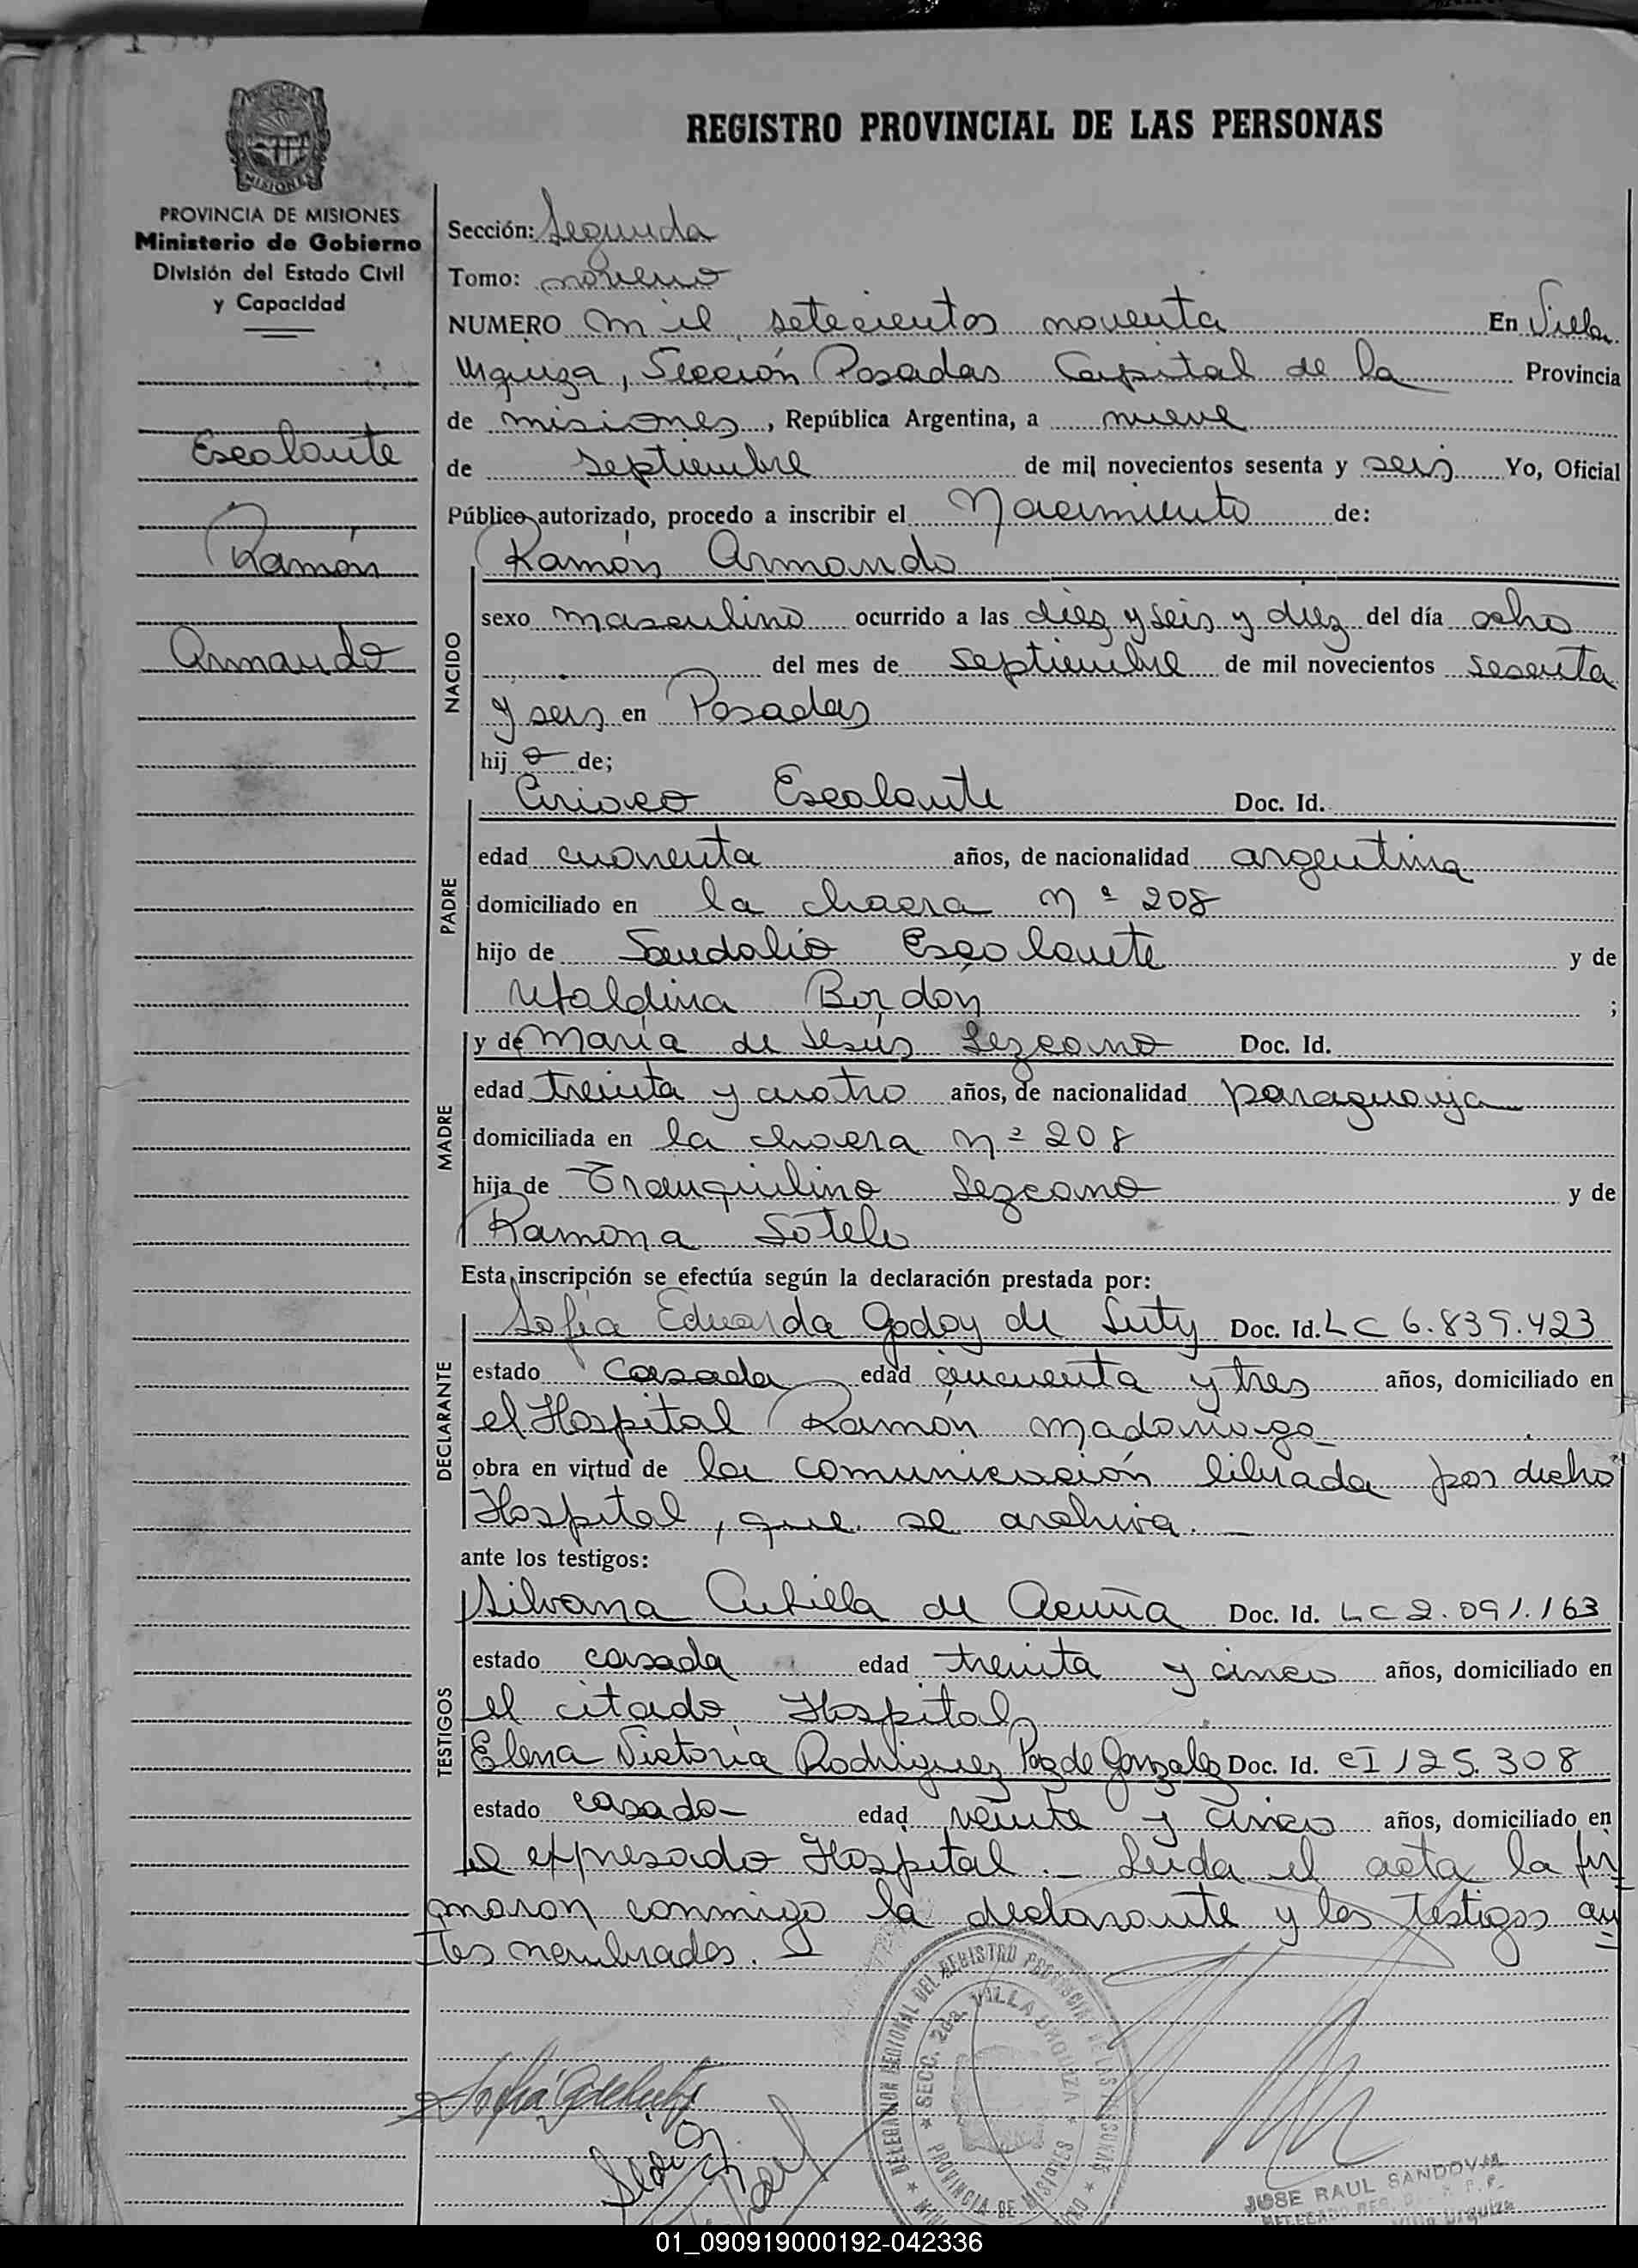 REGISTRO PROVINCIAL DE LAS PERSONAS
MISIONES
PROVINCIA DE MISIONES
Ministerio de Gobierno
División del Estado Civil
y Capacidad
Escalante
Ramón
Armando
Sección: Segunda
Tomo: noveno
NUMERO mil setecientos noventa En Villa
Urquiza, Sección Posadas Capital de la Provincia
de misiones, República Argentina, a nueve
de septiembre de mil novecientos sesenta y seis Yo, Oficial
Público autorizado, procedo a inscribir el Nacimiento de:
NACIDO
Ramón Armando
sexo masculino ocurrido a las diez y seis y diez del día ocho
del mes de septiembre de mil novecientos sesenta
y seis en Posadas
hijo de;
PADRE
Ciriaco Escalante Doc. Id.
edad cuarenta años, de nacionalidad argentina
domiciliado en la chacra nº 208
hijo de Sandalio Escalante y de
Ufaldina Bordón ;
MADRE
y de María de Jesús Lezcano Doc. Id.
edad treinta y cuatro años, de nacionalidad paraguaya
domiciliada en la chacra nº 208
hija de Tranquilino Lezcano y de
Ramona Sotelo
Esta inscripción se efectúa según la declaración prestada por:
DECLARANTE
Sofía Eduarda Godoy de Luty Doc. Id. LC 6.839.423
estado casada edad cincuenta y tres años, domiciliado en
el Hospital Ramón Madariaga
obra en virtud de la comunicación librada por dicho
Hospital, que se archiva.
ante los testigos:
TESTIGOS
Silvana de Acuña Doc. Id. LC 2.091.163
estado casada edad treinta y cinco años, domiciliado en
el citado Hospital
Elena Victoria Rodriguez Paz de Gonzalez Doc. Id. CI 125.308
estado casada edad veinte y cinco años, domiciliado en
el expresado Hospital. – Leida el acta la fir
maron conmigo la declarante y los testigos an
tes nombrados.
DELEGACION REGIONAL DEL REGISTRO PROVINCIAL DE LAS PERSONAS
SECC. 2da. VILLA URQUIZA
PROVINCIA DE MISIONES
JOSE RAUL SANDOVAL
01_090919000192-042336